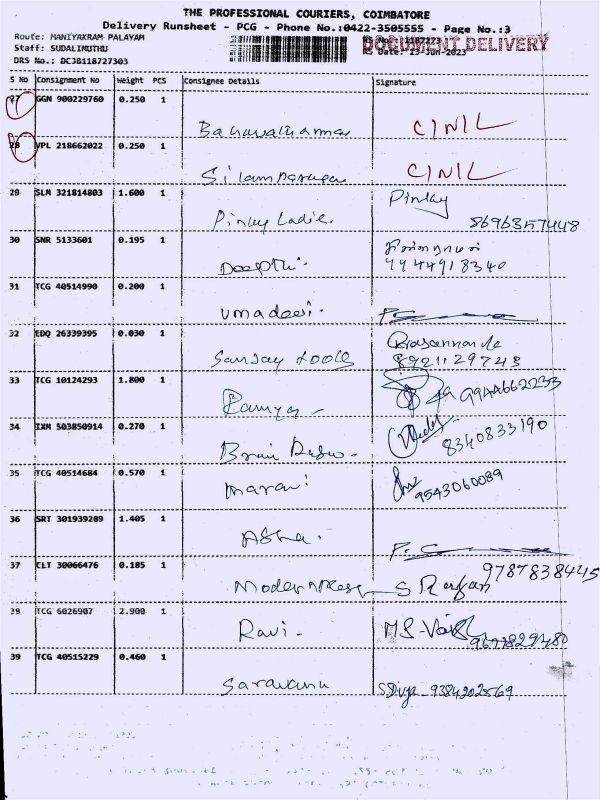 THE PROFESSIONAL COURIERS, COIMBATORE
Delivery Runsheet - PCG - Phone No.:0422-3505555 - Page No.:3
Route: MANIYAKRAM PALAYAM
DOCUMENT DELIVERY
Staff: SUDALIMUTHU
RS Date: 13-Jun-2023
DRS No.: DCJB118727303
S No Consignment No Weight PCS Consignee Details Signature
27 GGN 900229760 0.250 1
CINIL
28 VPL 218662022 0.250 1
CINIL
29 SLM 321814803 1.600 1 Pinky
Pinky Ladie. 8696357448
30 SNR 5133601 0.195 1
Deepthi. 9944918340
31 TCG 40514990 0.200 1
Umadevi.
32 EDQ 26339395 0.030 1
Sanjay tools 8921129748
33 TCG 10124293 1.800 1
Ramya 9944662233
34 IXM 503850914 0.270 1
8340833190
35 TCG 40514684 0.570 1
9543060089
36 SRT 301939289 1.405 1
Asha.
37 CLT 30066476 0.185 1 9787838445
38 TCG 6026907 2.900 1
Ravi.
39 TCG 40515229 0.460 1
Saravanan SDivya 9384202569